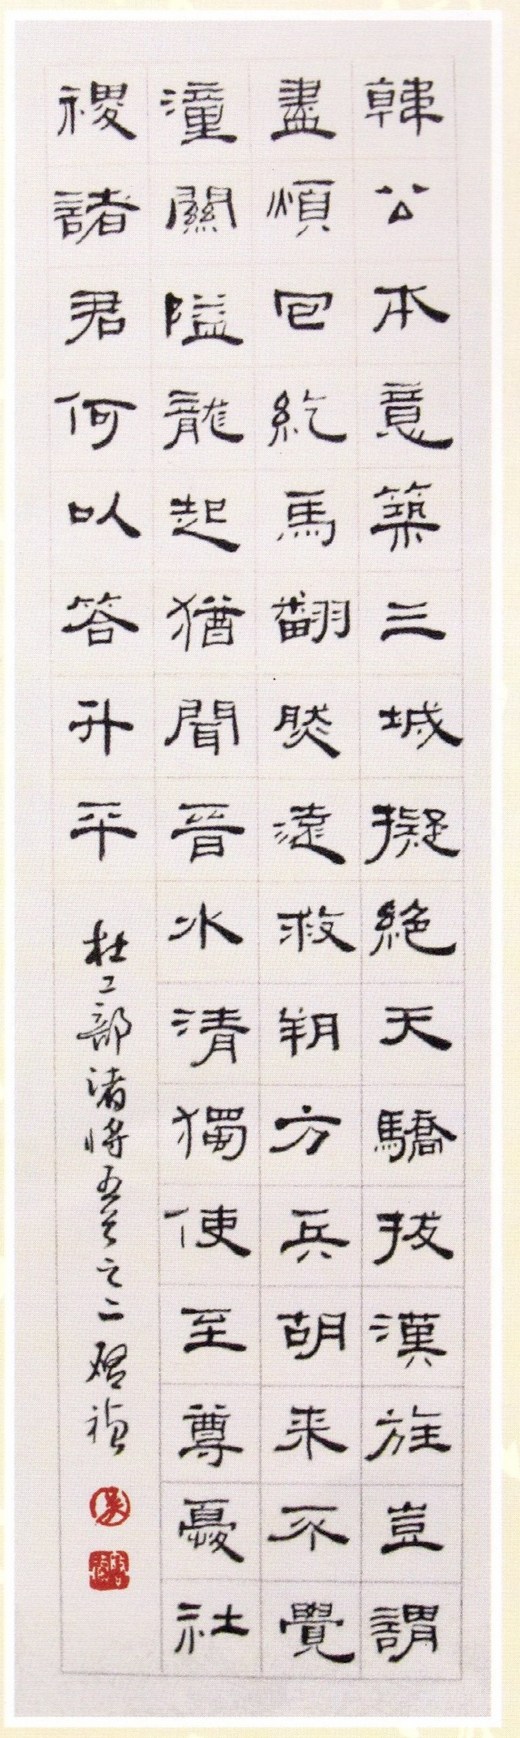 韓公本意築三城擬絶天驕拔漢旌豈謂
盡煩回紇馬翻然遠救朔方兵胡来不覺
潼關隘龍起猶聞晉水清獨使至尊憂社
稷諸君何以答升平
杜工部諸將五首之二
吳